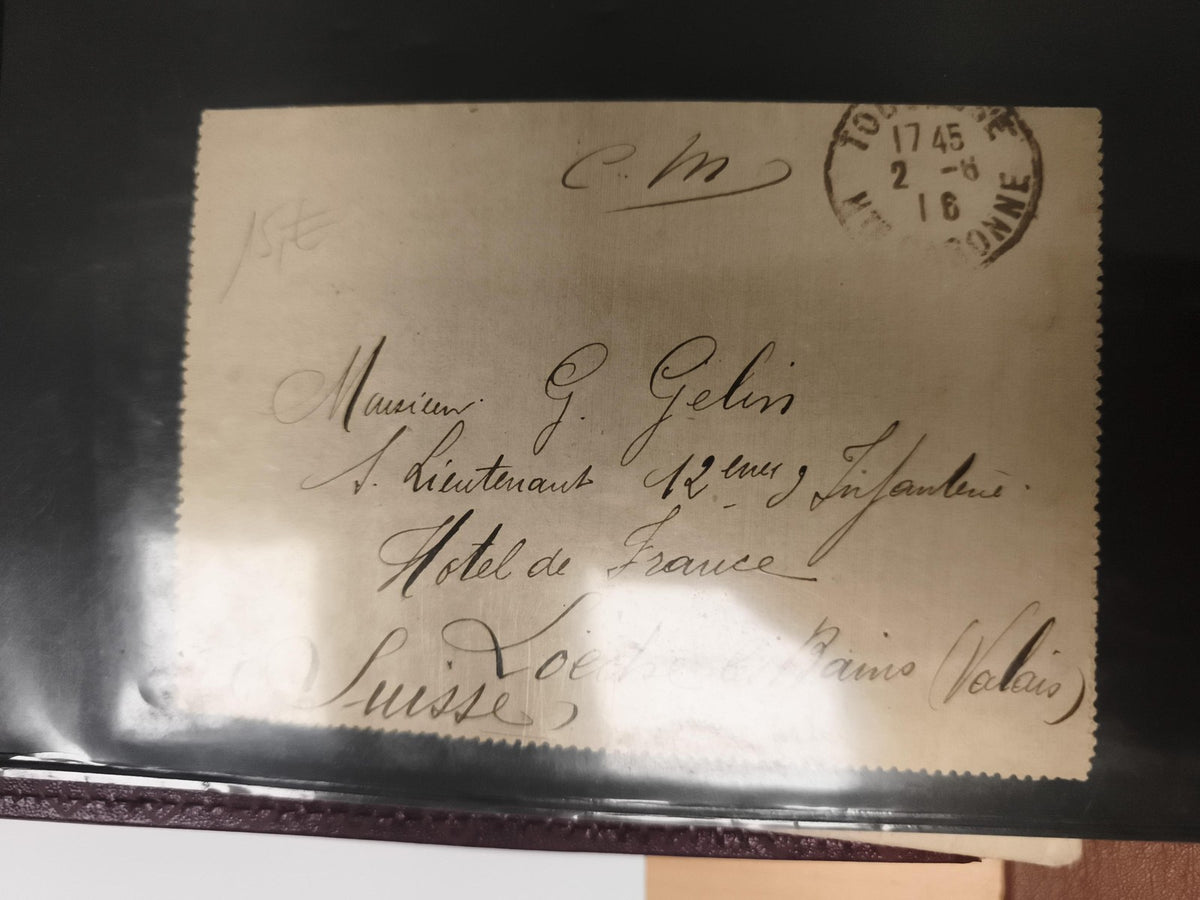 C. M
TOULOUSE
17 45
2 -8
16
Hte GARONNE
15€
Monsieur G. Gelin
S. Lieutenant 12eme Infanterie
Hotel de France
Loeche les Bains (Valais)
Suisse